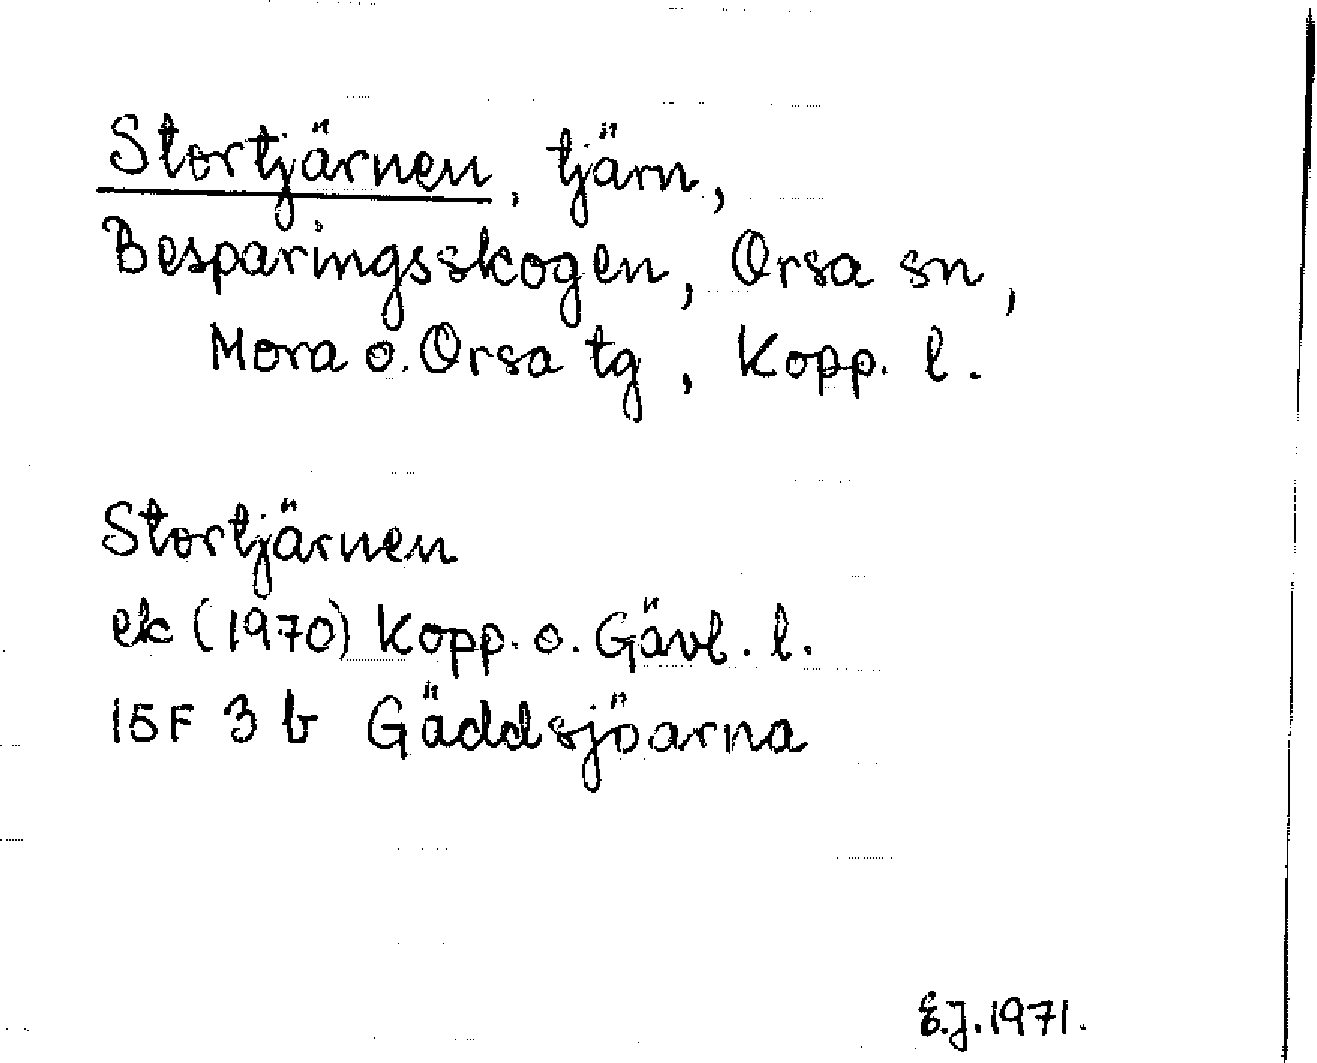 Stortjärnen, tjärn,
Besparingsskogen, Orsa sn,
Mora o. Orsa tg, Kopp. l.
Stortjärnen
ek (1970) Kopp. o. Gävl. l.
15F 3 b Gäddsjöarna
E.J. 1971.